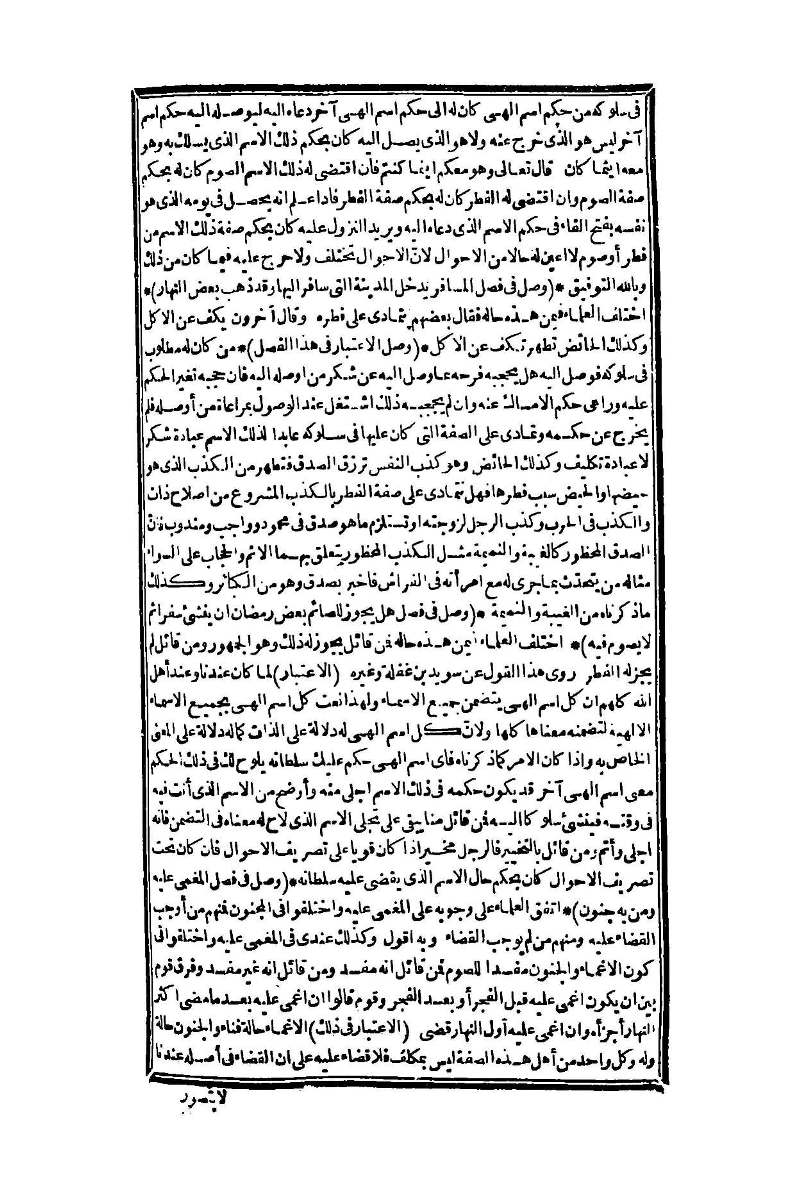 فى سلوكه من حكم اسم الهى كان له الى حكم اسم الهى آخر دعاه اليه ليوصله اليه حكم اسم
آخر ليس هو الذى خرج عنه ولا هو الذى يصل اليه كان بحكم ذلك الاسم الذى يسلك به وهو
معه اينما كان قال تعالى وهو معكم اينما كنتم فان اقتضى له ذلك الاسم الصوم كان له بحكم
صفة الصوم وان اقتضى له الفطر كان له بحكم صفة الفطر فاذا علم انه يحصل فى يومه الذى هو
نفسه بفتح الفاء فى حكم الاسم الذى دعاه اليه ويريد النزول عليه كان بحكم صفة ذلك الاسم من
فطر أوصوم لا اعين له حالا من الاحوال لانّ الاحوال تختلف ولا حرج عليه فيما كان من ذلك
وبالله التوفيق *(وصل فى فصل المسافر يدخل المدينة التى سافر اليها وقد ذهب بعض النهار)*
اختلف العلماء فيمن هذه حاله فقال بعضهم يتمادى على فطره وقال آخرون يكف عن الاكل
وكذلك الحائض تطهر تكف عن الاكل *(وصل الاعتبار فى هذا الفصل)* من كان له مطلوب
فى سلوكه فوصل اليه هل يحجبه فرحه بما وصل اليه عن شكر من اوصله اليه فان حجبه تغير الحكم
عليه وراعى حكم الامساك عنه وان لم يحجبه ذلك اشتغل عند الوصول بمراعاة من أوصله فلم
يخرج عن حكمه وتمادى على الصفة التى كان عليها فى سلوكه عابدا لذلك الاسم عبادة شكر
لا عبادة تكليف وكذلك الحائض وهو كذب النفس ترزق الصدق فتطهر من الكذب الذى هو
حيضها والحيض سبب فطرها فهل تتمادى على صفة الفطر بالكذب المشروع من اصلاح ذات
والكذب فى الحرب وكذب الرجل لزوجته او تستلزم ما هو صدق فى محمود وواجب ومندوب فان
الصدق المحظور كالغيبة والنميمة مثل الكذب المحظور يتعلق بهما الاثم والحجاب على السواء
مثاله من يتحدّث بما جرى له مع امرأته فى الفراش فاخبر بصدق وهو من الكبائر وكذلك
ما ذكرناه من الغيبة والنميمة *(وصل فى فصل هل يجوز للصائم بعض رمضان ان ينشئ سفرا ثم
لا يصوم فيه)* اختلف العلماء فيمن هذه حاله فمن قائل يجوز له ذلك وهو الجمهور ومن قائل لم
يجز له الفطر روى هذا القول عن سويد بن غفلة وغيره (الاعتبار) لما كان عندنا وعند أهل
الله كلهم ان كل اسم الهى يتضمن جميع الاسماء ولهذا نعت كل اسم الهى بجميع الاسماء
الالهية لتضمنه معناها كلها ولانّ كل اسم الهى له دلالة على الذات كماله دلالة على المعنى
الخاص به واذا كان الامر كما ذكرناه فاى اسم الهى حكم عليك سلطانه يلوح لك فى ذلك الحكم
معنى اسم الهى آخر قد يكون حكمه فى ذلك الاسم اجلى منه وأوضح من الاسم الذى أنت فيه
فى وقته فينشئ سلوكا اليه فمن قائل منا يبقى على تجلى الاسم الذى لاح له معناه فى التضمن فانه
اجلى وأتم ومن قائل بالتخيير فالرجل مخير اذا كان قويا على تصريف الاحوال فان كان تحت
تصريف الاحوال كان بحكم حال الاسم الذى يقضى عليه سلطانه *(وصل فى فصل المغمى عليه
ومن به جنون)* اتفق العلماء على وجوبه على المغمى عليه واختلفوا فى المجنون فمنهم من أوجب
القضاء عليه ومنهم من لم يوجب القضاء وبه اقول وكذلك عندى فى المغمى عليه واختلفوا فى
كون الاغماء والجنون مفسدا للصوم فمن قائل انه مفسد ومن قائل انه غير مفسد وفرق قوم
بين ان يكون اغمى عليه قبل الفجر أو بعد الفجر وقوم قالوا ان اغمى عليه بعد ما مضى اكثر
النهار أجزأه وان اغمى عليه أول النهار قضى (الاعتبار فى ذلك) الاغماء حالة فناء والجنون حالة
وله وكل واحد من أهل هذه الصفة ليس بمكلف فلا قضاء عليه على ان القضاء فى أصله عندنا
لا يتصور